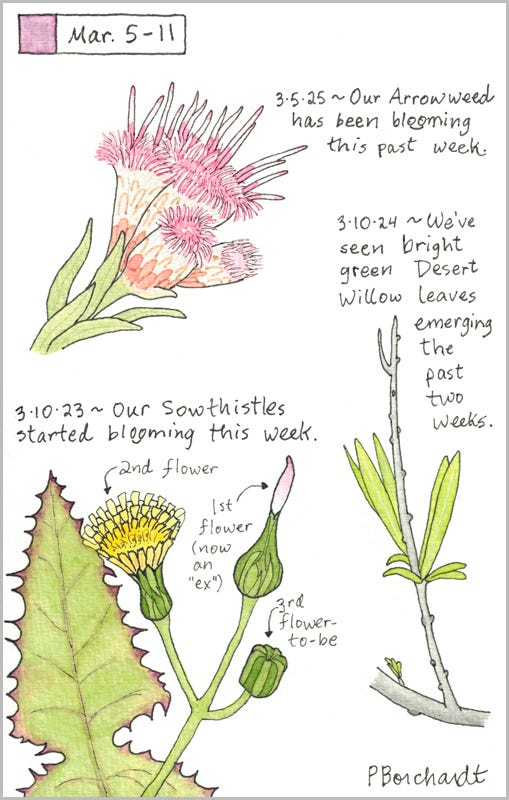 Mar. 5-11
3·5·25 ~ Our Arrowweed
has been blooming
this past week.
3·10·24 ~ We've
seen bright
green Desert
Willow leaves
emerging
the
past
two
weeks.
3·10·23 ~ Our Sowthistles
started blooming this week.
2nd flower
1st
flower
(now
an
"ex")
3rd
flower-
to-be
PBorchardt